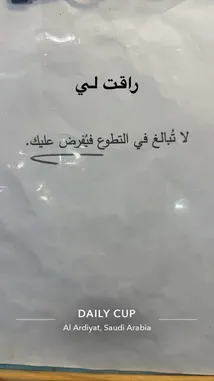 راقت لـي
لا تُبالغ في التطوع فيُفرض عليك.
DAILY CUP
Al Ardiyat, Saudi Arabia